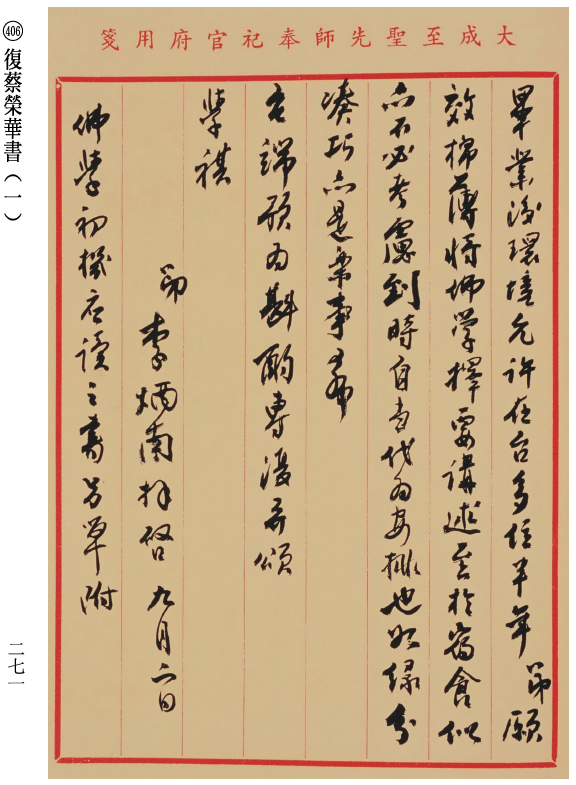 大成至聖先師奉祀官府用箋
畢業後環境允許在台多住半年弟願
效棉薄將佛學擇要講述至於宿食似
亦不必考慮到時自当代为安排也如緣分
湊巧亦是乘事專布
各端預为斟酌專復并頌
學祺
弟
李炳南拜啓 九月六日
佛學初機应讀之書另單附
406
復蔡榮華書（一）
二七一